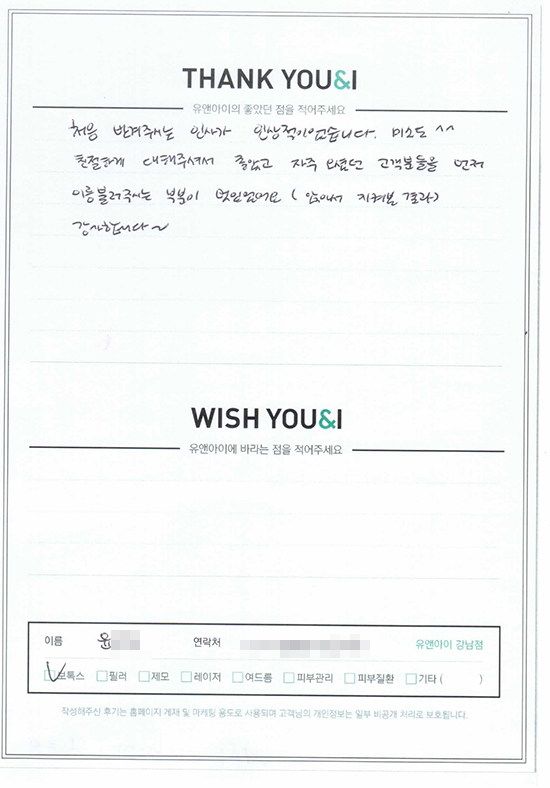 THANK YOU&I
유앤아이의 좋았던 점을 적어주세요
처음 반겨주시는 인사가 인상적이었습니다. 미소도 ^^
친절하게 대해주셔서 좋았고 자주 오셨던 고객분들을 먼저
이름불러주시는 부분이 멋있었어요 (앉아서 지켜본 결과)
감사합니다~
WISH YOU&I
유앤아이에 바라는 점을 적어주세요
이름 윤 연락처 유앤아이 강남점
보톡스 필러 제모 레이저 여드름 피부관리 피부질환 기타 ( )
작성해주신 후기는 홈페이지 게재 및 마케팅 용도로 사용되며 고객님의 개인정보는 일부 비공개 처리로 보호됩니다.